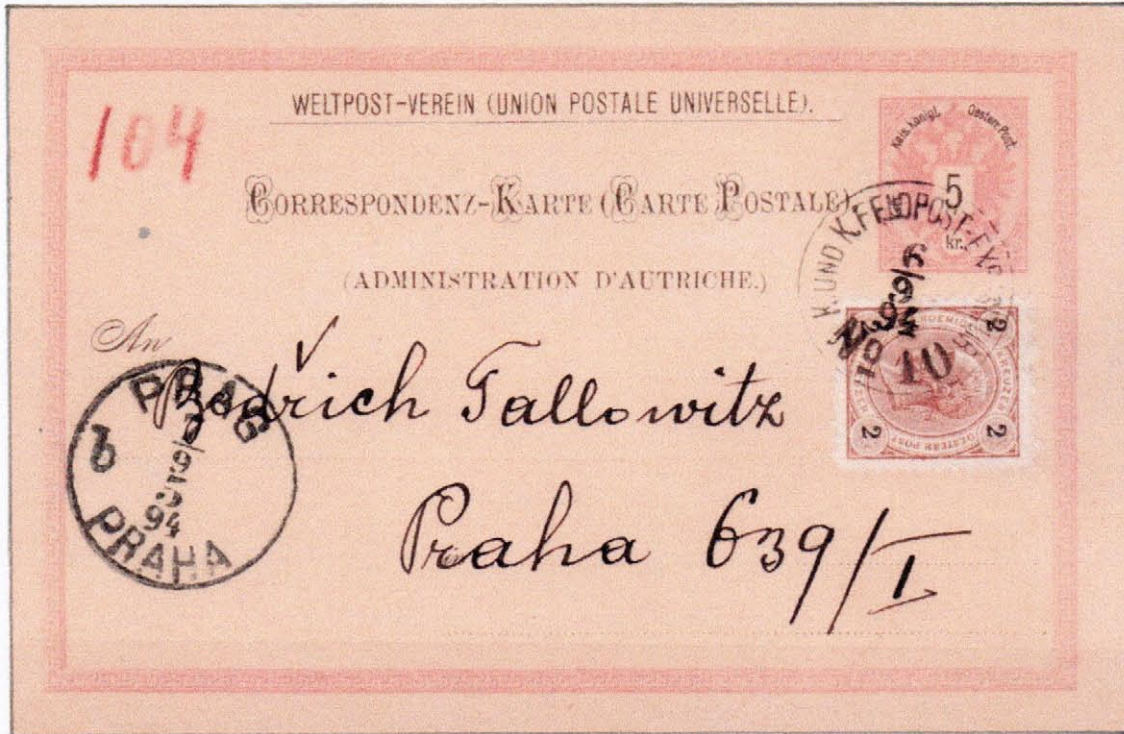 104
WELTPOST-VEREIN (UNION POSTALE UNIVERSELLE).
CORRESPONDENZ-KARTE (CARTE POSTALE)
(ADMINISTRATION D'AUTRICHE.)
Kais. Königl. Oesterr. Post.
5
kr.
K. UND K. FELDPOST-EXP
9/6
94
10
2
2
2
OESTERR. POST
An
Bedřich Fallowitz
Praha 639/I
PRAG
94
PRAHA